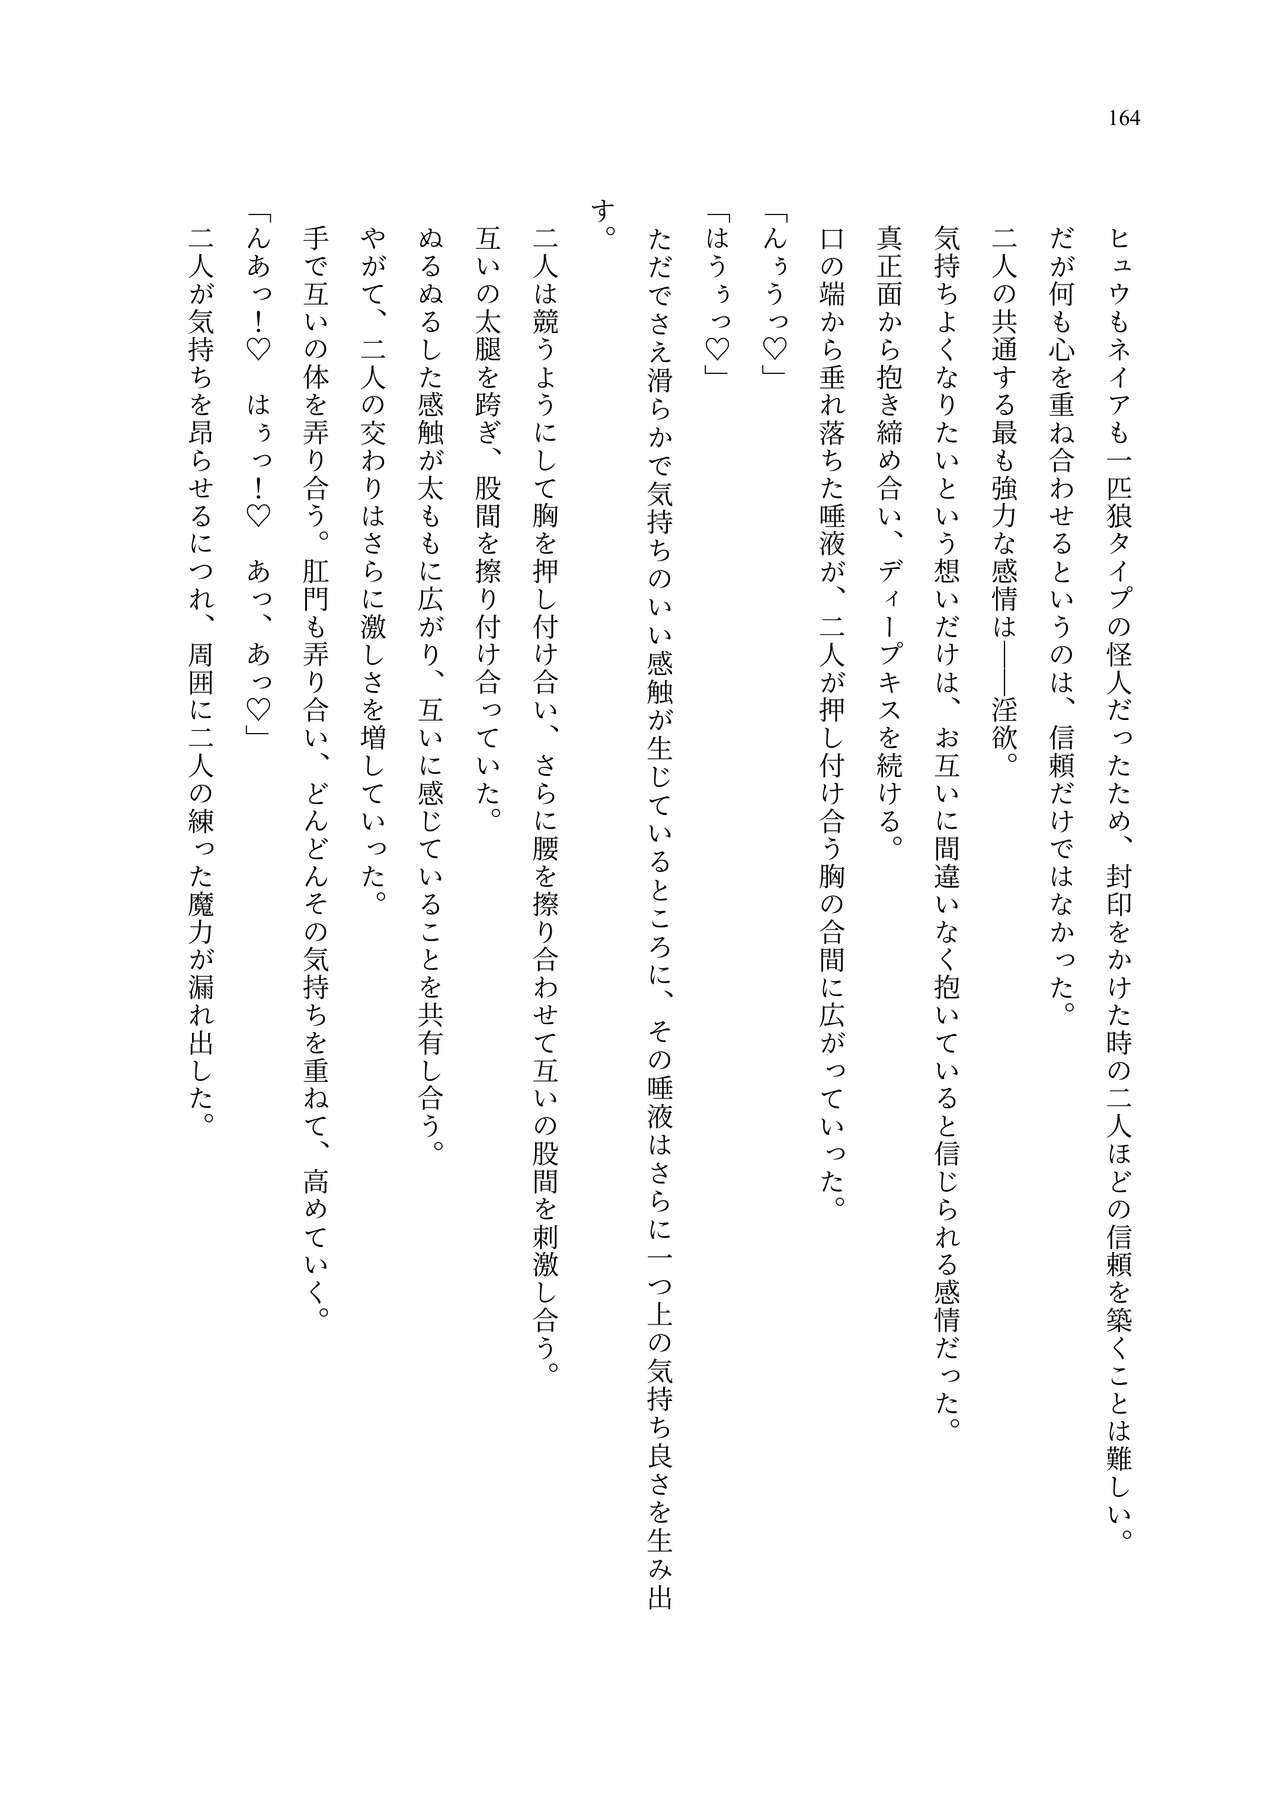 164
ヒュウもネイアも一匹狼タイプの怪人だったため、封印をかけた時の二人ほどの信頼を築くことは難しい。
だが何も心を重ね合わせるというのは、信頼だけではなかった。
二人の共通する最も強力な感情は――淫欲。
気持ちよくなりたいという想いだけは、お互いに間違いなく抱いていると信じられる感情だった。
真正面から抱き締め合い、ディープキスを続ける。
口の端から垂れ落ちた唾液が、二人が押し付け合う胸の合間に広がっていった。
「んぅうっ♡」
「はうぅっ♡」
ただでさえ滑らかで気持ちのいい感触が生じているところに、その唾液はさらに一つ上の気持ち良さを生み出
す。
二人は競うようにして胸を押し付け合い、さらに腰を擦り合わせて互いの股間を刺激し合う。
互いの太腿を跨ぎ、股間を擦り付け合っていた。
ぬるぬるした感触が太ももに広がり、互いに感じていることを共有し合う。
やがて、二人の交わりはさらに激しさを増していった。
手で互いの体を弄り合う。肛門も弄り合い、どんどんその気持ちを重ねて、高めていく。
「んあっ！♡　はぅっ！♡　あっ、あっ♡」
二人が気持ちを昂らせるにつれ、周囲に二人の練った魔力が漏れ出した。